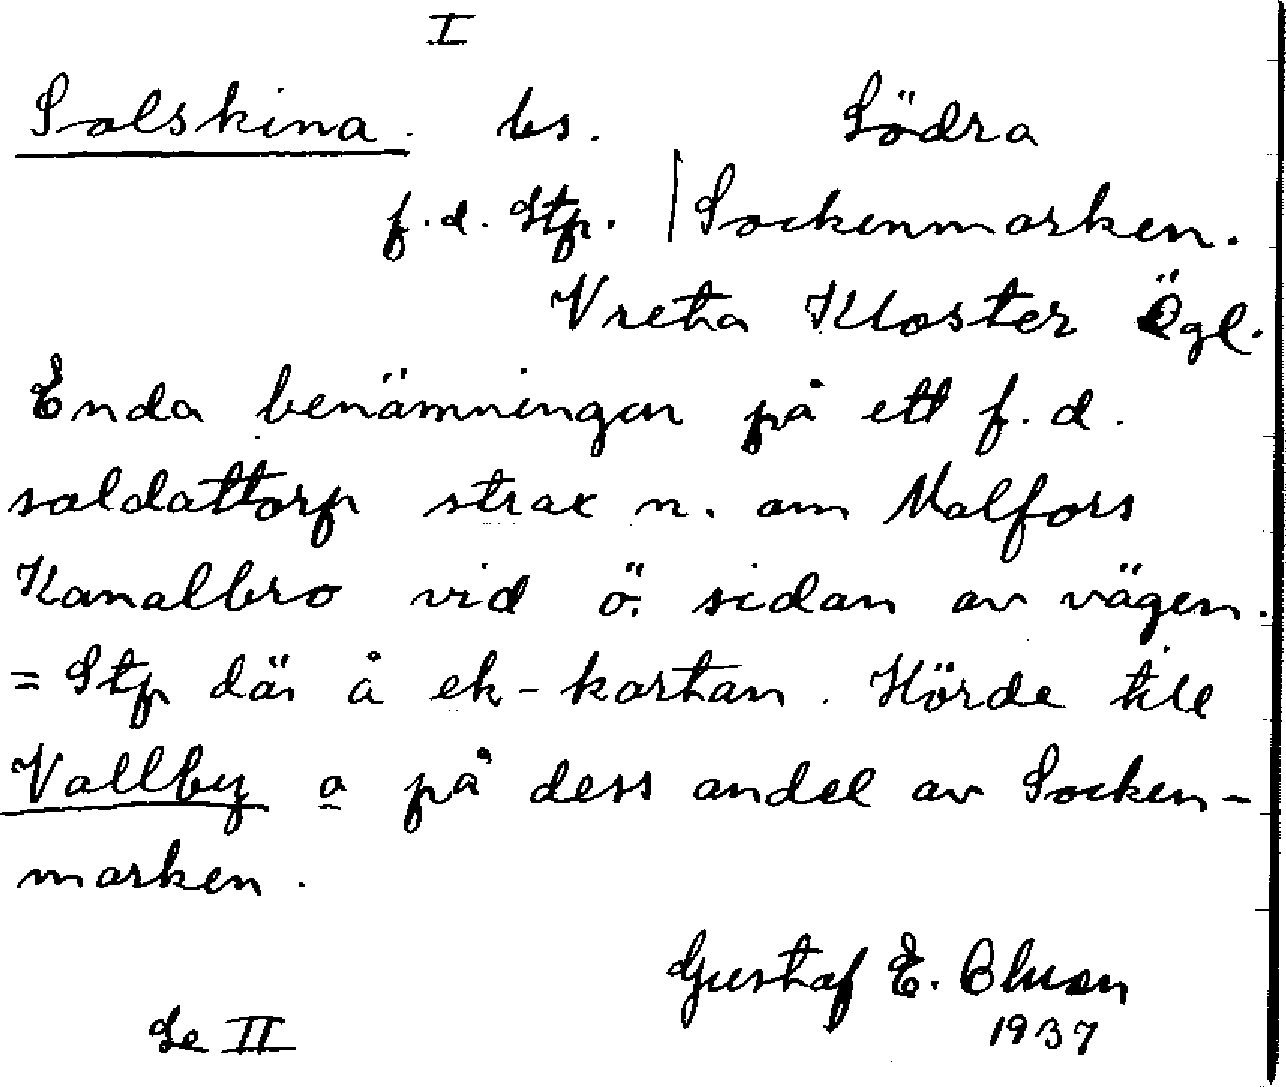 I
Solskina. bs. Södra
f.d. Stp. | Sockenmarken.
Vreta Kloster Ögl.
Enda benämningen på ett f.d.
soldattorp strax n. om Malfors
Kanalbro vid ö. sidan av vägen.
= Stp där å ek-kartan. Hörde till
Vallby o på dess andel av Socken-
marken.
Gustaf E. Olsson
Se II 1937